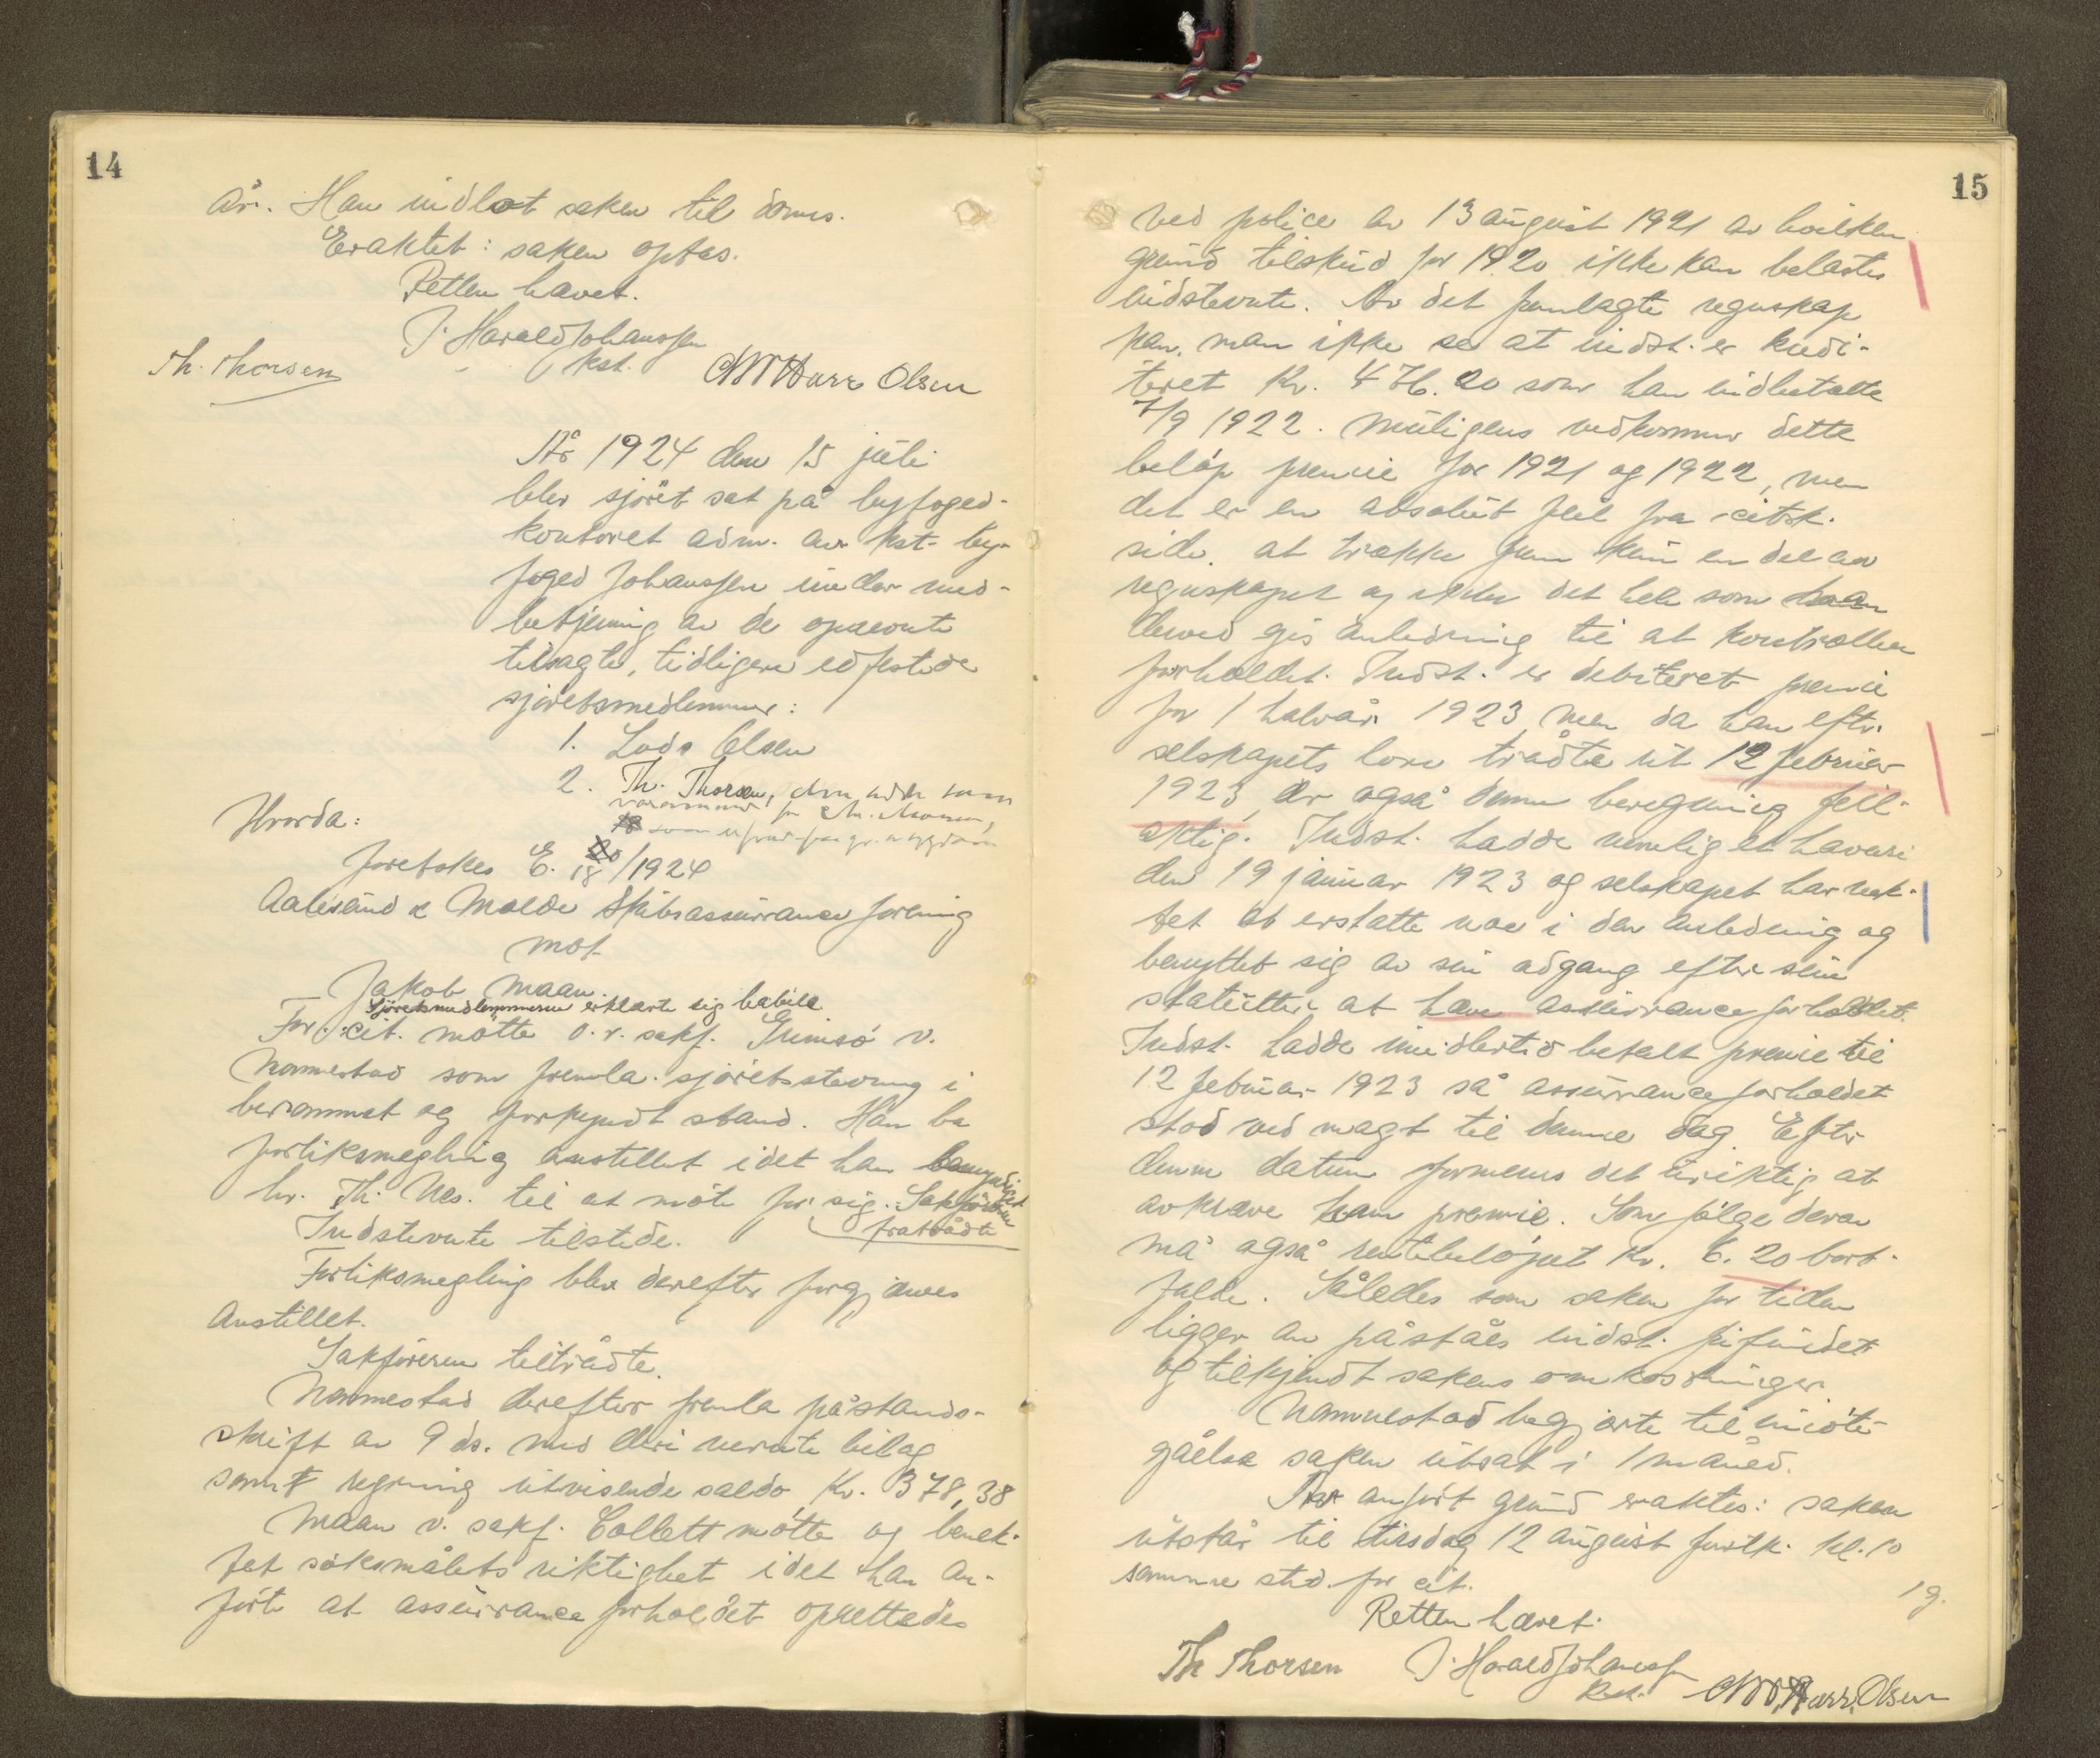 14
år. Han indlot saken til doms.
Eraktet: saken optas.
Retten hævet.
J. Harald Johanssen
kst.
Th. Thorsen
Olsen
År 1924 den 15 juli
blev sjøret sat på byfoged-
kontoret adm. av kst. by-
foged Johanssen under med-
betjening av de opnevnte
tilsagte, tidligere edfestede
sjøretsmedlemmer:
1. Lods Olsen
2. Th. Thorsen, den siste som
varamand for
som
Hvorda:
foretokes E. 18/1924
Aalesund & Molde Skibsassuranceforening
mot
Jakob Maan.
Sjøretsmedlemmerne erklærte sig habile
For cit. møtte o.r. sakf. Grimsø v.
Nannestad som fremla sjøretsstevning i
berammet og forkyndt stand. Han ba
forliksmegling anstillet idet han bemyndiget
hr. Th. Nes. til at møte for sig. Sakføreren
fratrådte
Indstevnte tilstede.
Forliksmegling blev derefter forgjæves
anstillet.
Sakføreren tiltrådte.
Nannestad derefter fremla påstands-
skrift av 9 ds. med deri nevnte bilag
samt regning utvisende saldo Kr. 378,38
Maan v. sakf. Collett møtte og benek-
tet søksmålets riktighet idet han an-
førte at assuranceforholdet oprettedes
15
ved police av 13 august 1921 av hvilken
grund tilskud for 1920 ikke kan belastes
indstevnte. Av det fremlagte regnskap
kan man ikke se at indst. er kredi-
teret Kr. 476.20 som han indbetalte
7/9 1922. Muligens vedkommer dette
beløp premie for 1921 og 1922, men
det er en absolut feil fra citst.
side at trække frem kun en del av
regnskapet og ikke det hele som
derved gis anledning til at kontrollere
forholdet. Indst. er debiteret premie
for 1 halvår 1923 men da han efter
selskapets love trådte ut 12 februar
1923 er også denne beregning feil-
aktig. Indst. hadde nemlig et havari
den 19 januar 1923 og selskapet har nek-
tet at erstatte noe i den anledning og
benyttet sig av sin adgang efter sine
statutter at hæve assuranceforholdet.
Indst. hadde imidlertid betalt premie til
12 februar 1923 så assuranceforholdet
stod ved magt til denne dag. Efter
denne datum formenes det uriktig at
avkreve ham premie. Som følge derav
må også rentebeløpet Kr. 6.20 bort-
falde. Således som saken for tiden
ligger an påståes indst. frifundet
og tilkjendt sakens omkostninger.
Nannestad begjærte til imøte-
gåelse saken utsat i 1 måned.
Av anført grund eraktes: saken
utstår til tirsdag 12 august førstk. kl. 10
samme sted for cit.
19.
Retten hævet.
Th Thorsen
J. Harald Johanssen
kst.
Olsen